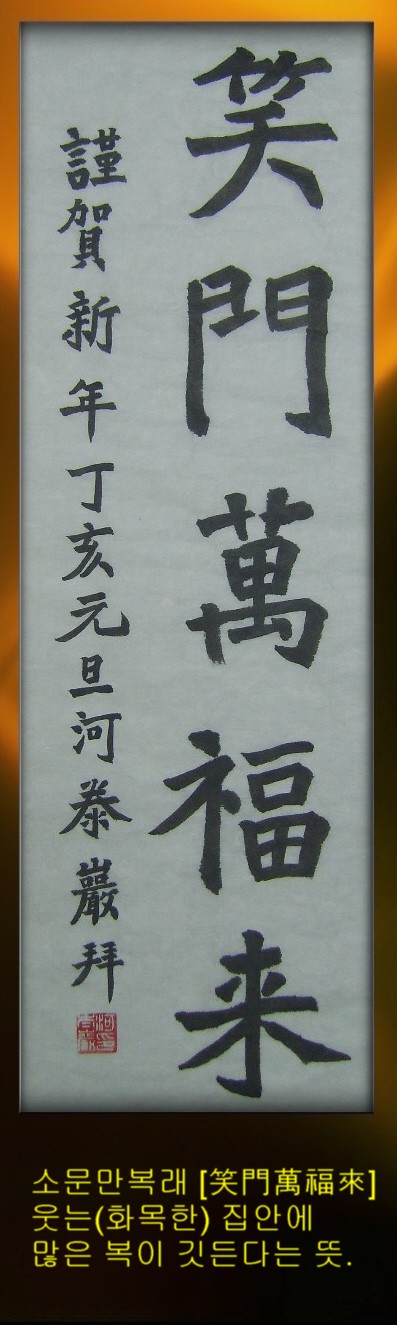 笑門萬福来
謹賀新年丁亥元旦河泰巖拜
소문만복래 [笑門萬福來]
웃는(화목한) 집안에
많은 복이 깃든다는 뜻.